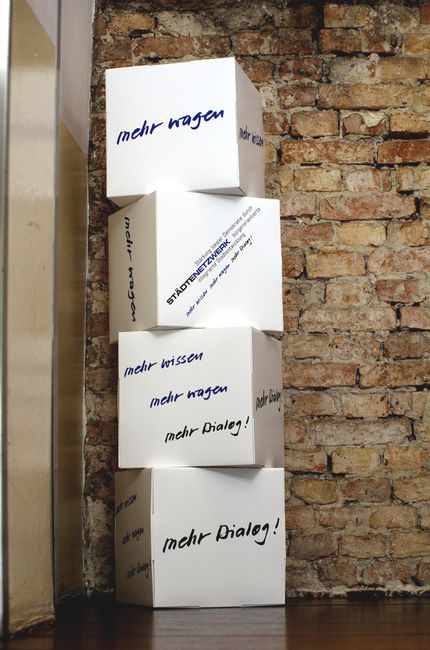 mehr wagen
mehr wissen
mehr wagen
Stärkung lokaler Demokratie durch
bürgerorientierte
STÄDTENETZWERK
integrierte Stadtentwicklung
mehr wissen mehr wagen mehr Dialog!
mehr wissen
mehr wagen
mehr Dialog!
mehr Dialog
mehr wissen
mehr wagen
mehr Dialog!
mehr Dialog!